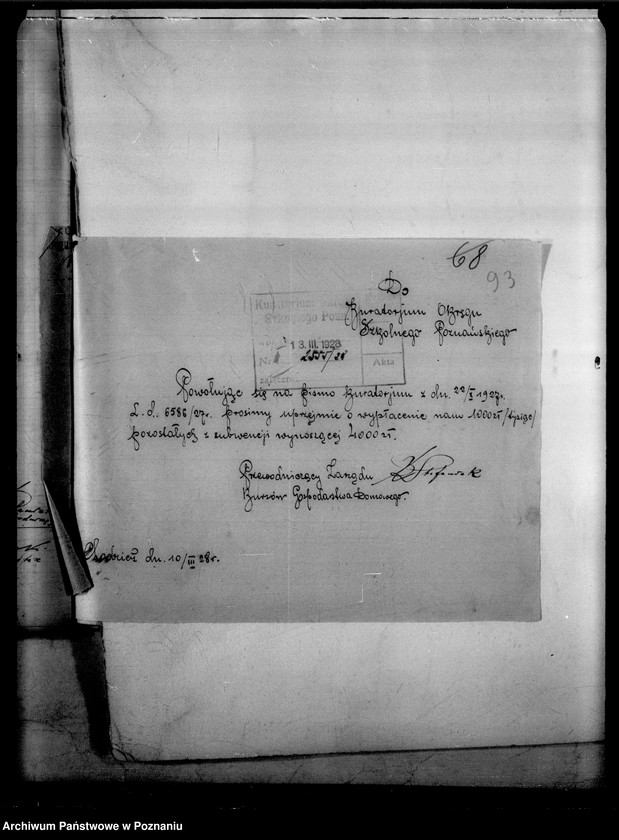 68
93
Do
Kuratorjum Okręgu
Szkolnego Poznańskiego
Kuratorjum
Szkolnego Pozn
13. III. 1928
Nr. 2555/28
Akta
Powołując się na pismo Kuratorjum z dn. 22/I 1927r.
L. d. 6586/27r. prosimy uprzejmie o wypłacenie nam 1000 zł /tysiąc/
pozostałych z subwencji wynoszącej 4000 zł.
Przewodniczący Zarządu
Kursów Gospodarstwa Domowego.
dn. 10/III 28r.
Archiwum Państwowe w Poznaniu